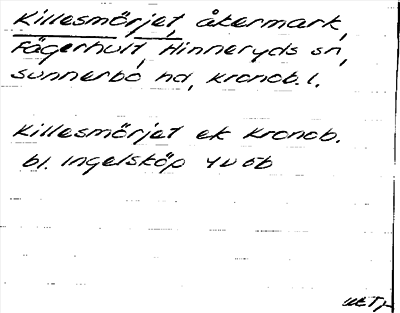 Killesmörjet, åkermark,
Fägerhult, Hinneryds sn,
Sunnerbo hd, Kronob. l.
Killesmörjet ek Kronob.
bl. Ingelsköp 4v 6b